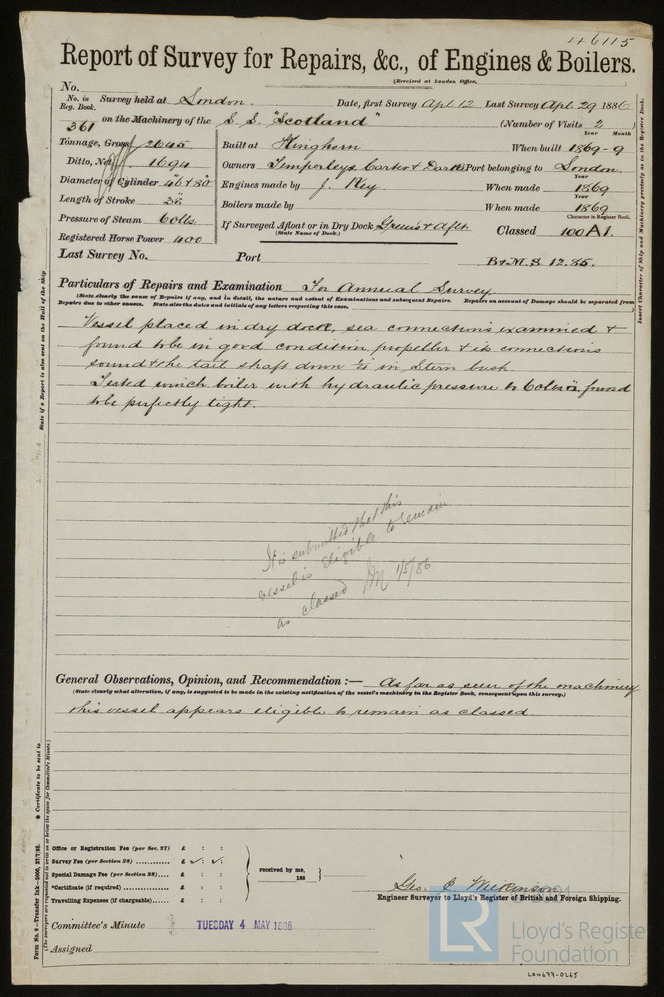 46115
Report of Survey for Repairs, &c., of Engines & Boilers.
(Received at London Office,
No.
No. in Reg. Book. Survey held at London. Date, first Survey Apl. 12 Last Survey Apl 29 1886
361 on the Machinery of the S. S. "Scotland" (Number of Visits 2
Year Month
Tonnage, Gross 2645 Built at Kinghorn When built 1869-9
Ditto, Net 1694 Owners Temperleys Carter & Darke Port belonging to London.
Diameter of Cylinder 46 & 80" Engines made by J. Key When made 1869
Year
Length of Stroke 36 Boilers made by When made 1869
Year
Pressure of Steam 60lbs If Surveyed Afloat or in Dry Dock Green's & Aflt. Classed 100A1.
(State Name of Dock.) Character in Register Book.
Registered Horse Power 400
Last Survey No. Port B&M.S. 12.85.
Particulars of Repairs and Examination For Annual Survey.
(State clearly the cause of Repairs if any, and in detail, the nature and extent of Examinations and subsequent Repairs. Repairs on account of Damage should be separated from
Repairs due to other causes. State also the dates and initials of any letters respecting this case.
Vessel placed in dry dock, sea connections examined &
found to be in good condition, propeller & its connections
sound & the tail shaft down in Stern bush.
Tested winch boiler with hydraulic pressure to found
to be perfectly tight.
It is submitted that this
vessel is eligible to remain
as classed 1/5/86
General Observations, Opinion, and Recommendation :— As far as seen of the machinery
(State clearly what alteration, if any, is suggested to be made in the existing notification of the vessel's machinery in the Register Book, consequent upon this survey.)
this vessel appears eligible to remain as classed
Office or Registration Fee (per Sec. 27) £ : :
Survey Fee (per Section 28) £ : :
Special Damage Fee (per Section 28) £ : :
*Certificate (if required) £ : :
Travelling Expenses (if chargeable) £ : :
received by me,
188
Geo. C Wilkinson
Engineer Surveyor to Lloyd's Register of British and Foreign Shipping.
Committee's Minute TUESDAY 4 MAY 1886
Assigned
Insert Character of Ship and Machinery precisely as in the Register Book.
State if a Report is also sent on the Hull of the Ship
* Certificate to be sent to
Form No. 9—Transfer Ink—2000, 27/7/85.
(The Surveyors are requested not to write on or below the space for Committee's Minute.)
LR
Lloyd's Register
Foundation
LON677-0265